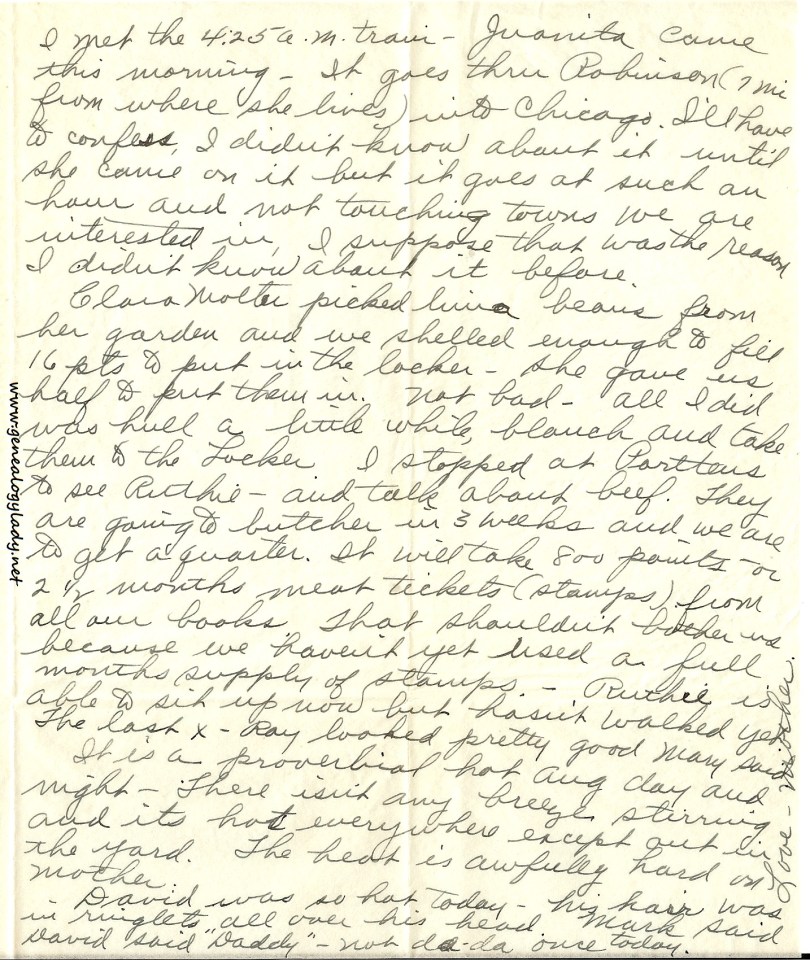 I met the 4:25 a.m. train - Juanita came
this morning - It goes thru Robinson (7 mi
from where she lives) into Chicago. I'll have
to confess, I didn't know about it until
she came on it but it goes at such an
hour and not touching towns we are
interested in, I suppose that was the reason
I didn't know about it before.
Clara Molter picked lima beans from
her garden and we shelled enough to fill
16 pts to put in the locker - she gave us
half to put them in. Not bad - all I did
was hull a little while, blanch and take
them to the Locker. I stopped at
to see Ruthie - and talk about beef. They
are going to butcher in 3 weeks and we are
to get a quarter. It will take 800 points - or
2 1/2 months meat tickets (stamps) from
all our books. That shouldn't bother us
because we haven't yet used a full
months supply of stamps. - Ruthie is
able to sit up now but hasn't walked yet.
The last x-Ray looked pretty good Mary said
It is a proverbial hot Aug day and
night - There isn't any breeze stirring
and its hot everywhere except out in
the yard. The heat is awfully hard on
Mother.
David was so hot today - his hair was
in ringlets all over his head. Mark said
David said "Daddy" - not da-da once today.
Love - Mother.
www.genealogylady.net